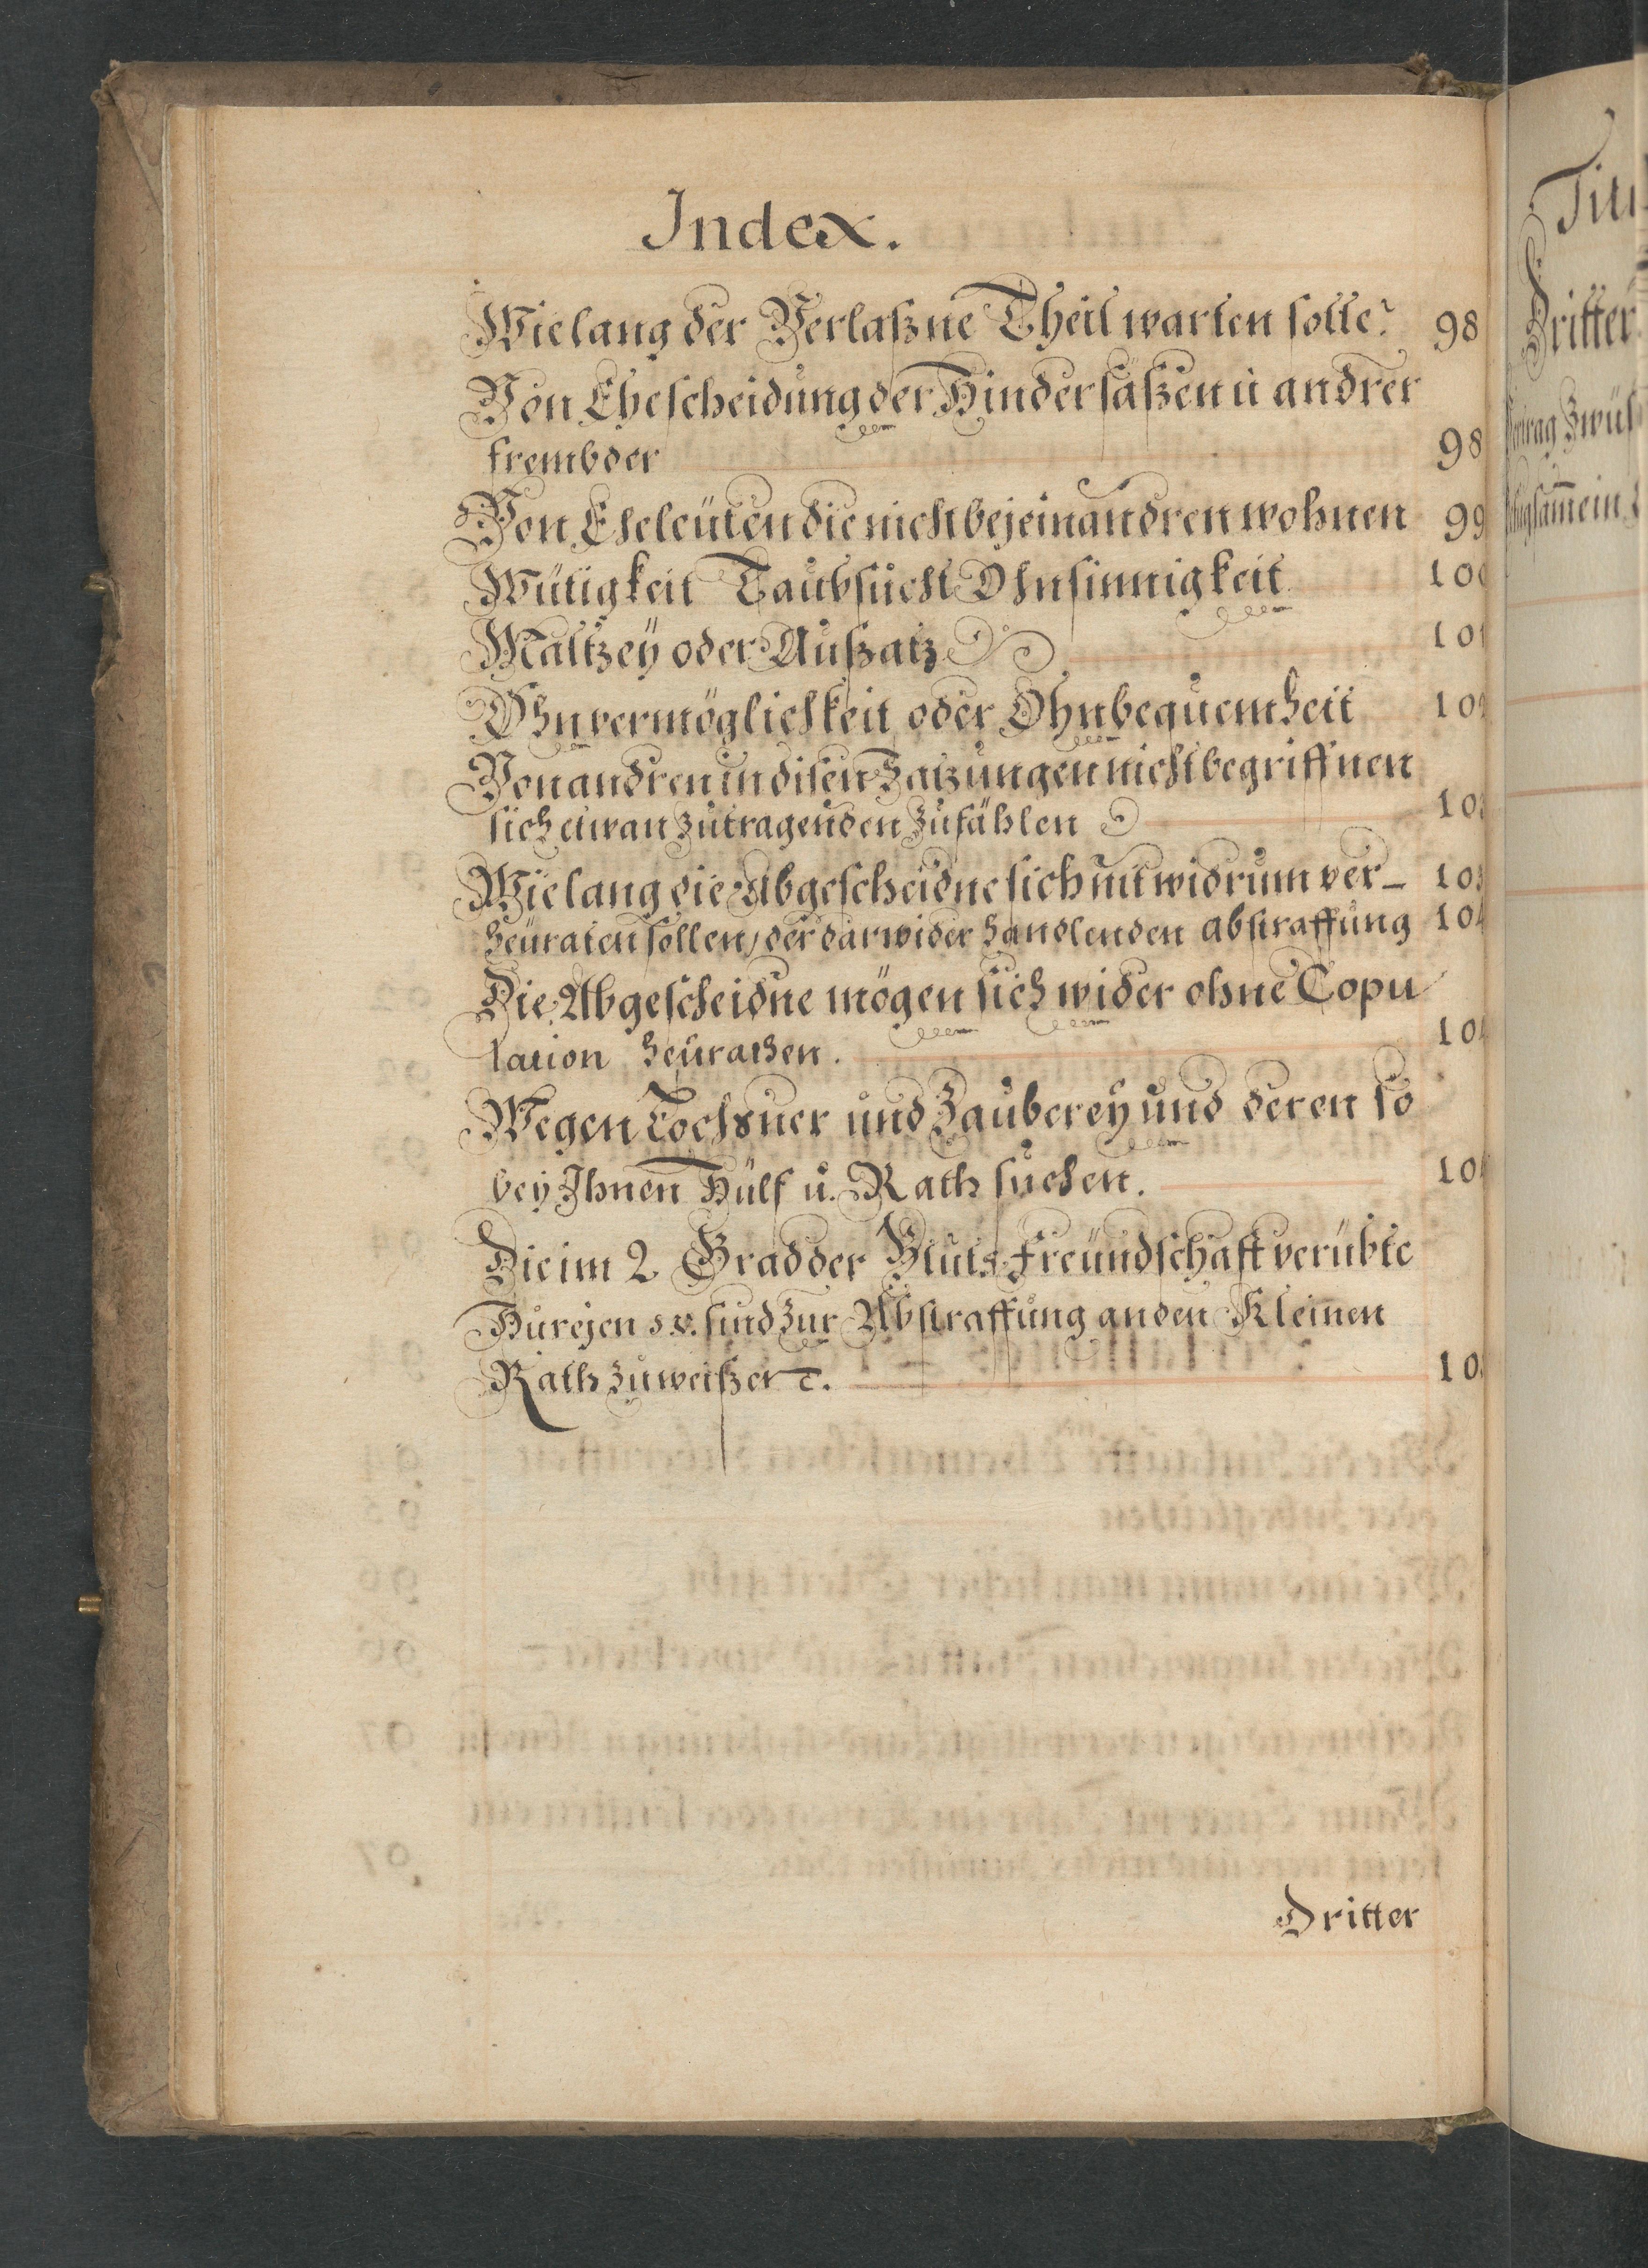 Index.
Wie lang der Verlaßne Theil warten solle? 98
Von Ehescheidung der Hindersäßen u andrer
frembder 98
Von Eheleüten die nicht bej einandren wohnen 99
Wütigkeit Taubsucht Ohnsinnigkeit 100
Maltzey oder Außatz 101
Ohnvermöglichkeit oder Ohnbequemheit 10
Von andren in disen Satzungen nicht begriffnen
sich etwan zutragenden Zufählen 10
Wie lang die Abgescheidne sich nit widrum ver- 103
heüraten sollen, der darwider handlenden abstraffung 104
Die Abgescheidne mögen sich wider ohne Copu
lation heürathen. 10
Wegen und Zauberey und deren so
bey Ihnen Hülf u. Rath suchen. 10
Die im 2 Grad der Bluts Freündschafft verübte
Hurejen s.v. sind zur Abstraffung an den Kleinen
Rath zu weißen. 10
Dritter
Titu
Dritter
Zwüs